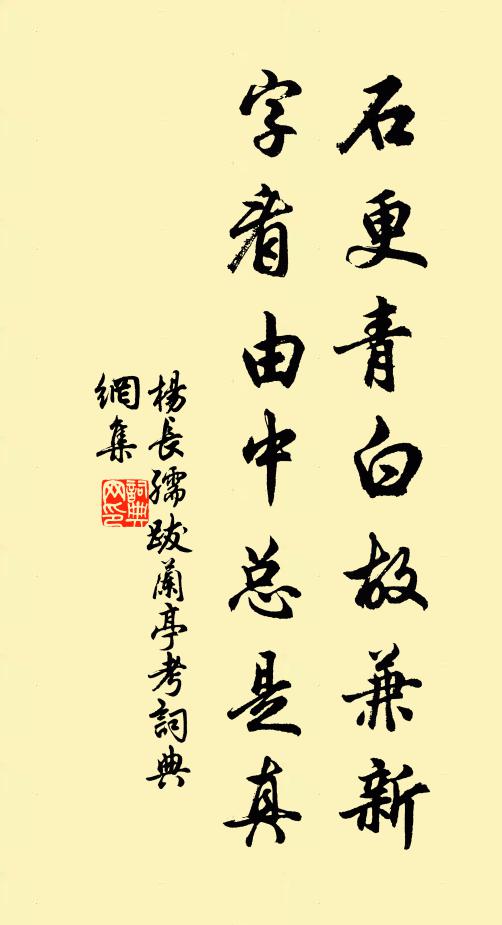 石更青白故兼新
字看由中总是真
楊長孺跋蘭亭考詞典
網集
詞典
网印